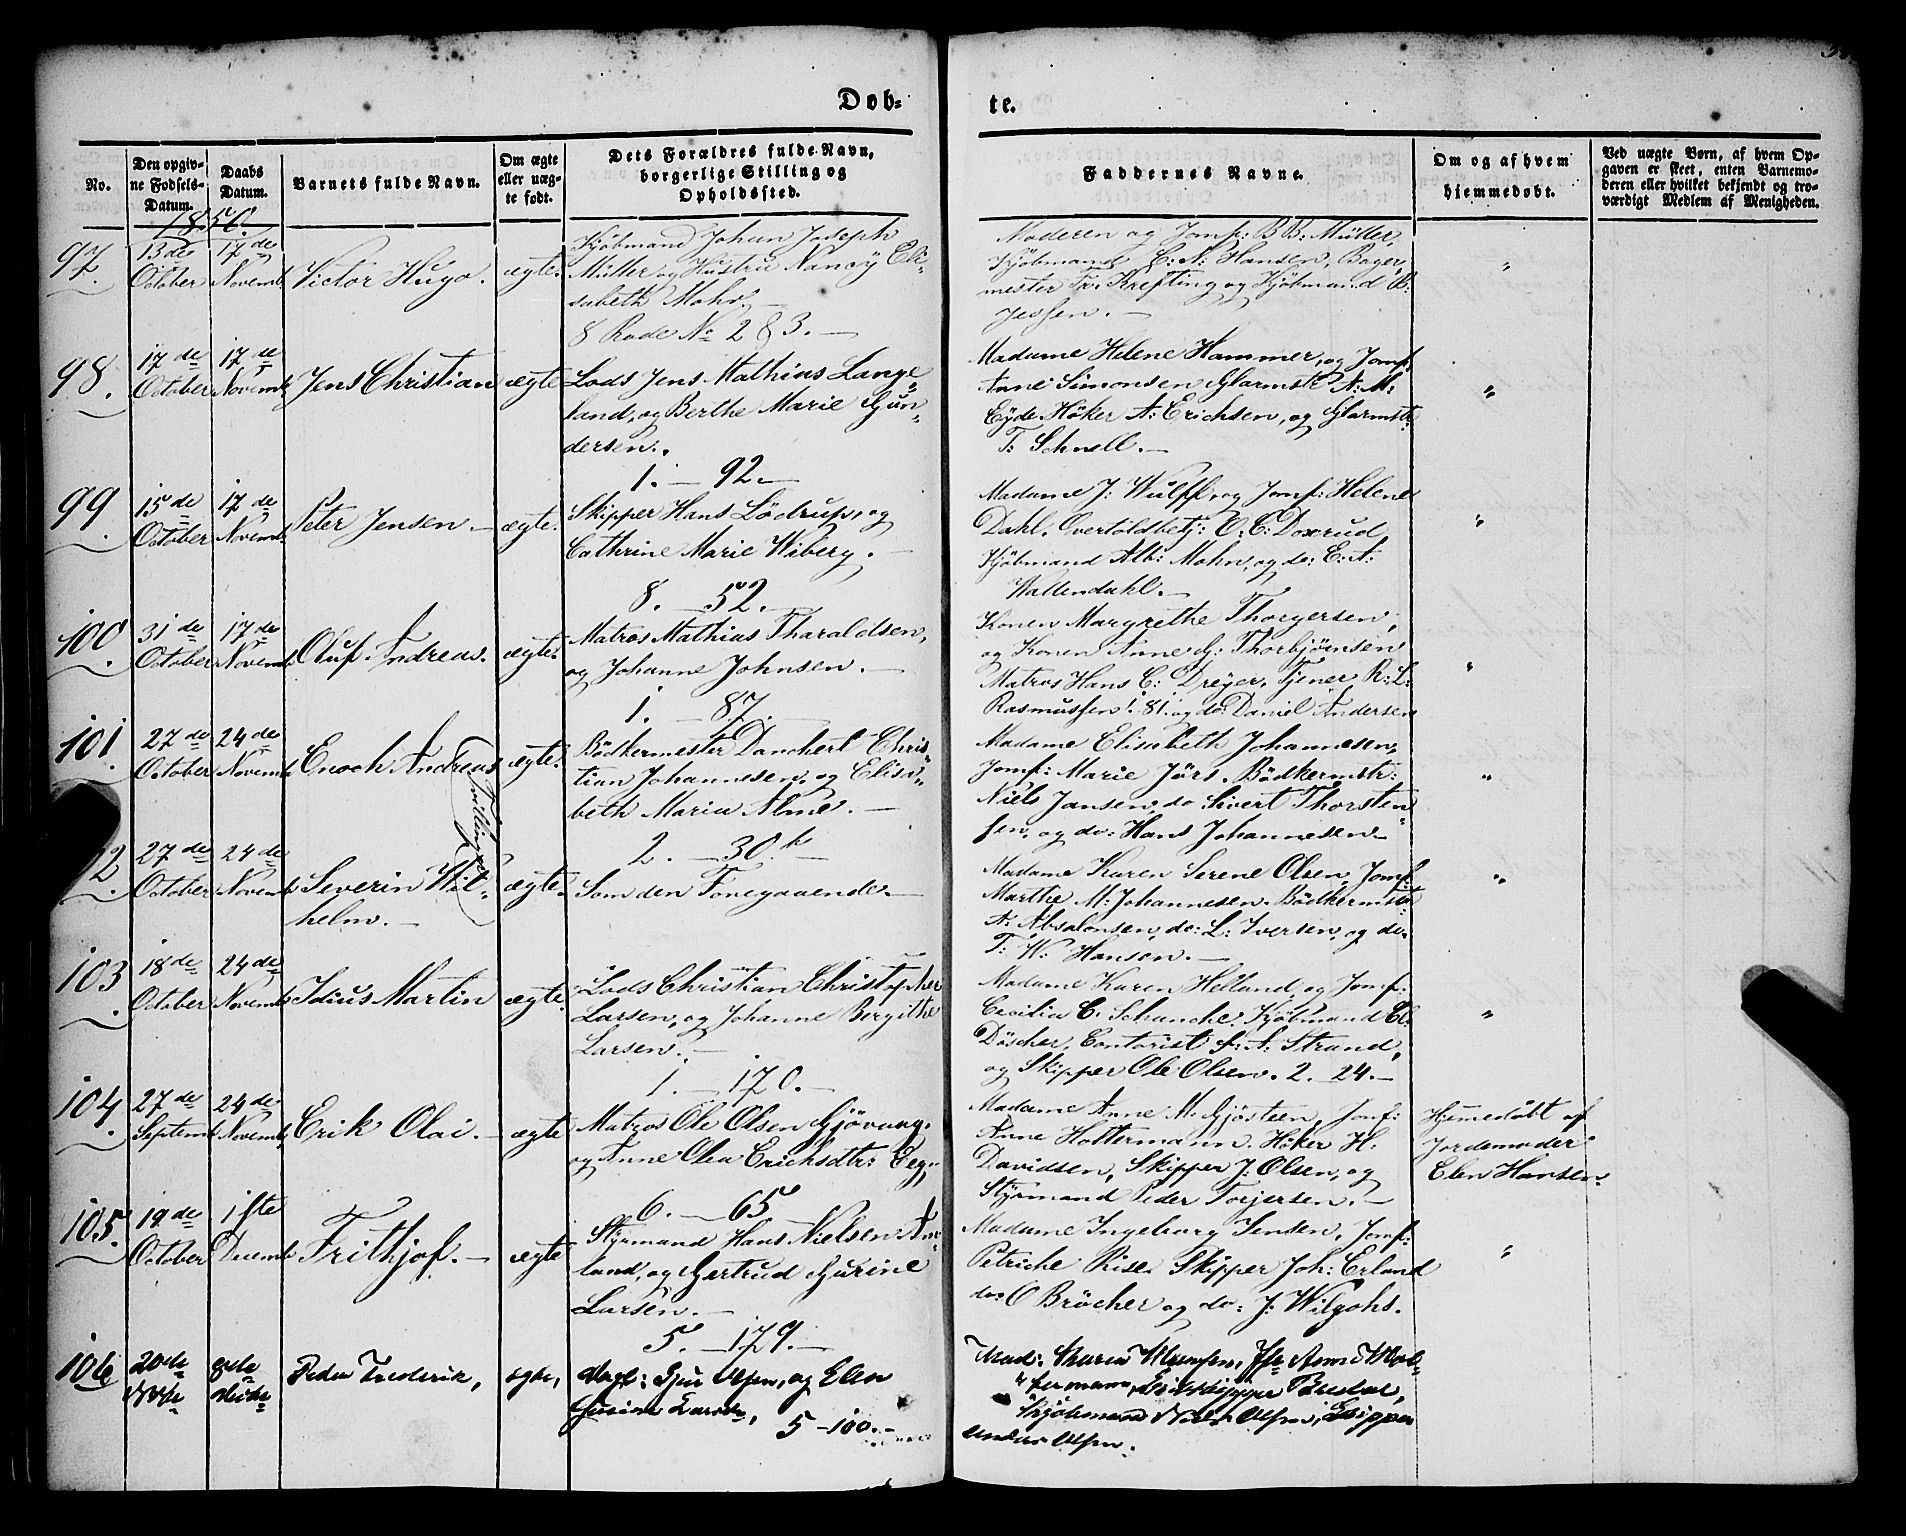 Døb-
te.
No.
Den opgiv-
ne Fødsels-
Datum.
Daabs
Datum.
Barnets fulde Navn.
Om ægte
eller uæg-
te født.
Dets Forældres fulde Navn,
borgerlige Stilling og
Opholdssted.
Faddernes Navne.
Om og af hvem
hjemmedøbt.
Ved uægte Børn, af hvem Op-
gaven er skeet, enten Barnemo-
deren eller hvilket bekjendt og tro-
værdigt Medlem af Menigheden.
1850.
97.
13de
October
17de
Novemb.
Victor Hugo.
ægte.
Kjøbmand Johan Joseph
Müller og Hustru Nancÿ Eli-
sabeth Mohr.
8 Rode No 2 & 3.
Moderen og Jomf: B B. Müller,
Kjøbmand C: N: Hansen, Bager-
mester Fr. Krefting og Kjøbmand B.
Jessen.
"
98.
17de
October
17de
Novemb.
Jens Christian
ægte
Lods Jens Mathias Lange
land, og Berthe Marie Gun-
dersen.
1. — 92.
Madame Helene Hammer, og Jomf.
Anne Simonsen Glarmstr. N: M:
Eÿde. Høker A: Erichsen, og Glarmstr.
T: Schnell.
"
99.
15de
October
17de
Novemb.
Peter Jensen.
ægte.
Skipper Hans Lödrup, og
Cathrine Marie Wiberg.
8. — 52.
Madame J: Wulff, og Jomf: Helene
Dahl. Overtoldbetj: O: C: Doxrud,
Kjøbmand Alb: Mohn, og do: E: A:
Wallendahl.
"
100.
31de
October
17de
Novemb.
Oluf Andreas.
ægte.
Matros Mathias Tharaldsen,
og Johanne Johnsen.
1. — 87.
Konen Margrethe Thorgersen,
og Konen Anne G: Thorbjørnsen
Matros Hans C: Dreÿer, Tjener R: L:
Rasmussen 1. 81. og do: Daniel Andersen
"
101.
27de
October
24de
Novemb.
Enoch Andreas
Tvillinger
ægte.
Bödkermester Danchert Chris-
tian Johannesen, og Elisa-
beth Maria Alme.
2. — 30. b
Madame Elisabeth Johannesen,
Jomf: Marie Jørs. Bödkermstr:
Niels Jansen, do Sivert Thorsten
sen, og do: Hans Johannesen.
"
2.
27de
October
24de
Novemb.
Severin Wil-
helm.
ægte.
Som den Foregaaende.
Madame Karen Serene Olsen, Jomf.
Marthe M: Johannesen. Bödkermstr.
A: Absalonsen, do: L: Iversen, og do:
T: W: Hansen.
"
103.
18de
October
24de
Novemb.
Idius Martin
ægte
Lods Christian Christopher
Larsen, og Johanne Bergithe
Larsen.
1. — 170.
Madame Karen Helland, og Jomf:
Cecilia C. Schanche. Kjøbmand Cl.
Döscher, Contorist S: A: Strand,
og Skipper Ole Olsen. 2. — 24.
"
104.
27de
Septemb.
24de
Novemb.
Erik Olai.
ægte
Matros Ole Olsen Gjövaag.
og Anne Olea Erichsdtr: Eeg.
6. — 65
Madame Anne M. Gjösteen, Jomf:
Anne Holtermann. Høker H:
Davidsen, Skipper J: Olsen, og
Stÿrmand Peder Torjersen.
Hjemedøbt af
Jordemoder
Elen Hansen.
105.
19de
October
1ste
Decemb.
Frithjof.
ægte
Stÿrmand Hans Nielsen Am-
land, og Gertrud Gurine
Larsen.
5. — 179.
Madame Ingeborg Jensen, Jomf:
Petriche Riise. Skipper Joh: Erland
do: O Bröcher og do: J: Wilgohs.
"
106
20de
8de
Peder Frederik,
ægte,
Olsen, og Elen
Gurine Larsdr,
5 — 100.
Mad: Maria Monsen, Jfr Anne Hol-
termann, Skipper
Kjøbmand Olsen, Skipper
Anders Olsen.